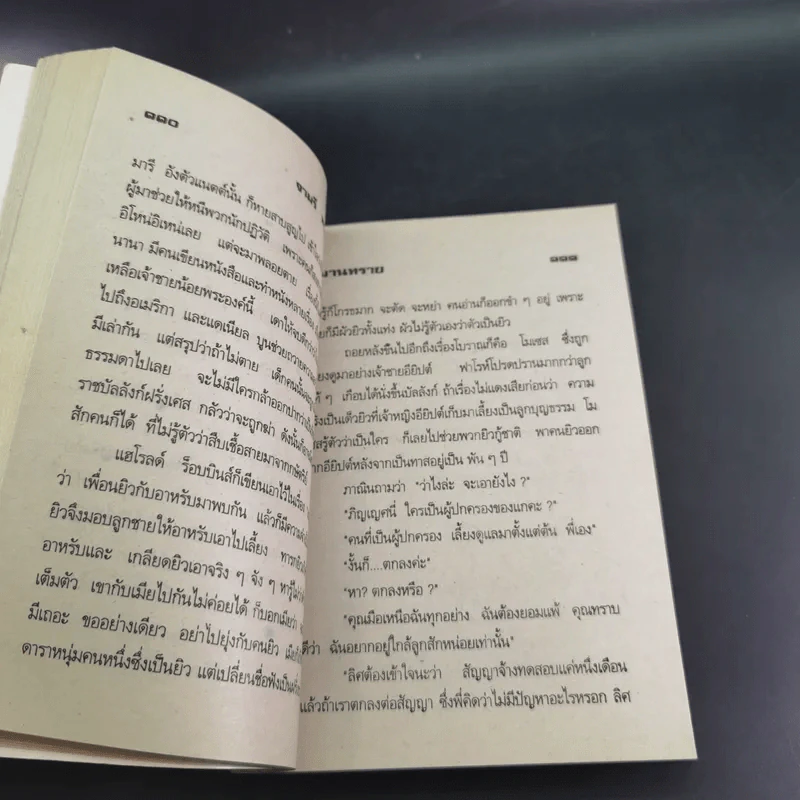 ๑๑๐
งามรี
มารี อังตัวแนตต์นั้น ก็หายสาบสูญไป
ผู้มาช่วยให้หนีพวกนักปฏิวัติ เพราะ
อิโหน่อิเหน่เลย แต่จะมาพลอยตาย
นานา มีคนเขียนหนังสือและทำหนังหลายเรื่อง
เหลือเจ้าชายน้อยพระองค์นี้ เดาให้จบดีกว่า
ไปถึงอเมริกา และแดเนียล บูนช่วยถวายความ
มีเล่ากัน แต่สรุปว่าถ้าไม่ตาย เด็กคนนั้น
ธรรมดาไปเลย จะไม่มีใครกล้าออกปากว่า
ราชบัลลังก์ฝรั่งเศส กลัวว่าจะถูกฆ่า ดังนั้น
สักคนก็ได้ ที่ไม่รู้ตัวว่าสืบเชื้อสายมาจากกษัตริย์
แฮโรลด์ ร็อบบินส์ก็เขียนเอาไว้ในเรื่อง
ว่า เพื่อนยิวกับอาหรับมาพบกัน แล้วก็มีความ
ยิวจึงมอบลูกชายให้อาหรับเอาไปเลี้ยง ทารก
อาหรับและ เกลียดยิวเอาจริง ๆ จัง ๆ หารู้ไม่
เต็มตัว เขากับเมียไปกันไม่ค่อยได้ ก็บอกเมียว่า
มีเถอะ ขออย่างเดียว อย่าไปยุ่งกับคนยิว
ดาราหนุ่มคนหนึ่งซึ่งเป็นยิว แต่เปลี่ยนชื่อฟังเป็น
มานทราย
๑๑๑
รู้ก็โกรธมาก จะตัด จะหย่า คนอ่านก็ออกขำ ๆ อยู่ เพราะ
ยก็มีผัวยิวทั้งแท่ง ผัวไม่รู้ตัวเองว่าตัวเป็นยิว
ถอยหลังขึ้นไปอีกถึงเรื่องโบราณก็คือ โมเสส ซึ่งถูก
ยงดูมาอย่างเจ้าชายอียิปต์ ฟาโรห์โปรดปรานมากกว่าลูก
ๆ เกือบได้นั่งขึ้นบัลลังก์ ถ้าเรื่องไม่แดงเสียก่อนว่า ความ
รังเป็นเด็วยิวที่เจ้าหญิงอียิปต์เก็บมาเลี้ยงเป็นลูกบุญธรรม โม
สรู้ตัวว่าเป็นใคร ก็เลยไปช่วยพวกยิวกู้ชาติ พาคนยิวออก
ากอียิปต์หลังจากเป็นทาสอยู่เป็น พัน ๆ ปี
ภาณินถามว่า "ว่าไงล่ะ จะเอายังไง ?"
"ภิญเญศนี่ ใครเป็นผู้ปกครองของแกคะ ?"
"คนที่เป็นผู้ปกครอง เลี้ยงดูแลมาตั้งแต่ต้น พี่เอง"
"งั้นก็....ตกลงค่ะ"
"หา? ตกลงหรือ ?"
"คุณมีเหนือฉันทุกอย่าง ฉันต้องยอมแพ้ คุณทราบ
ดีว่า ฉันอยากอยู่ใกล้ลูกสักหน่อยเท่านั้น"
"ลิศต้องเข้าใจนะว่า สัญญาจ้างทดสอบแค่หนึ่งเดือน
แล้วถ้าเราตกลงต่อสัญญา ซึ่งพี่คิดว่าไม่มีปัญหาอะไรหรอก ลิศ